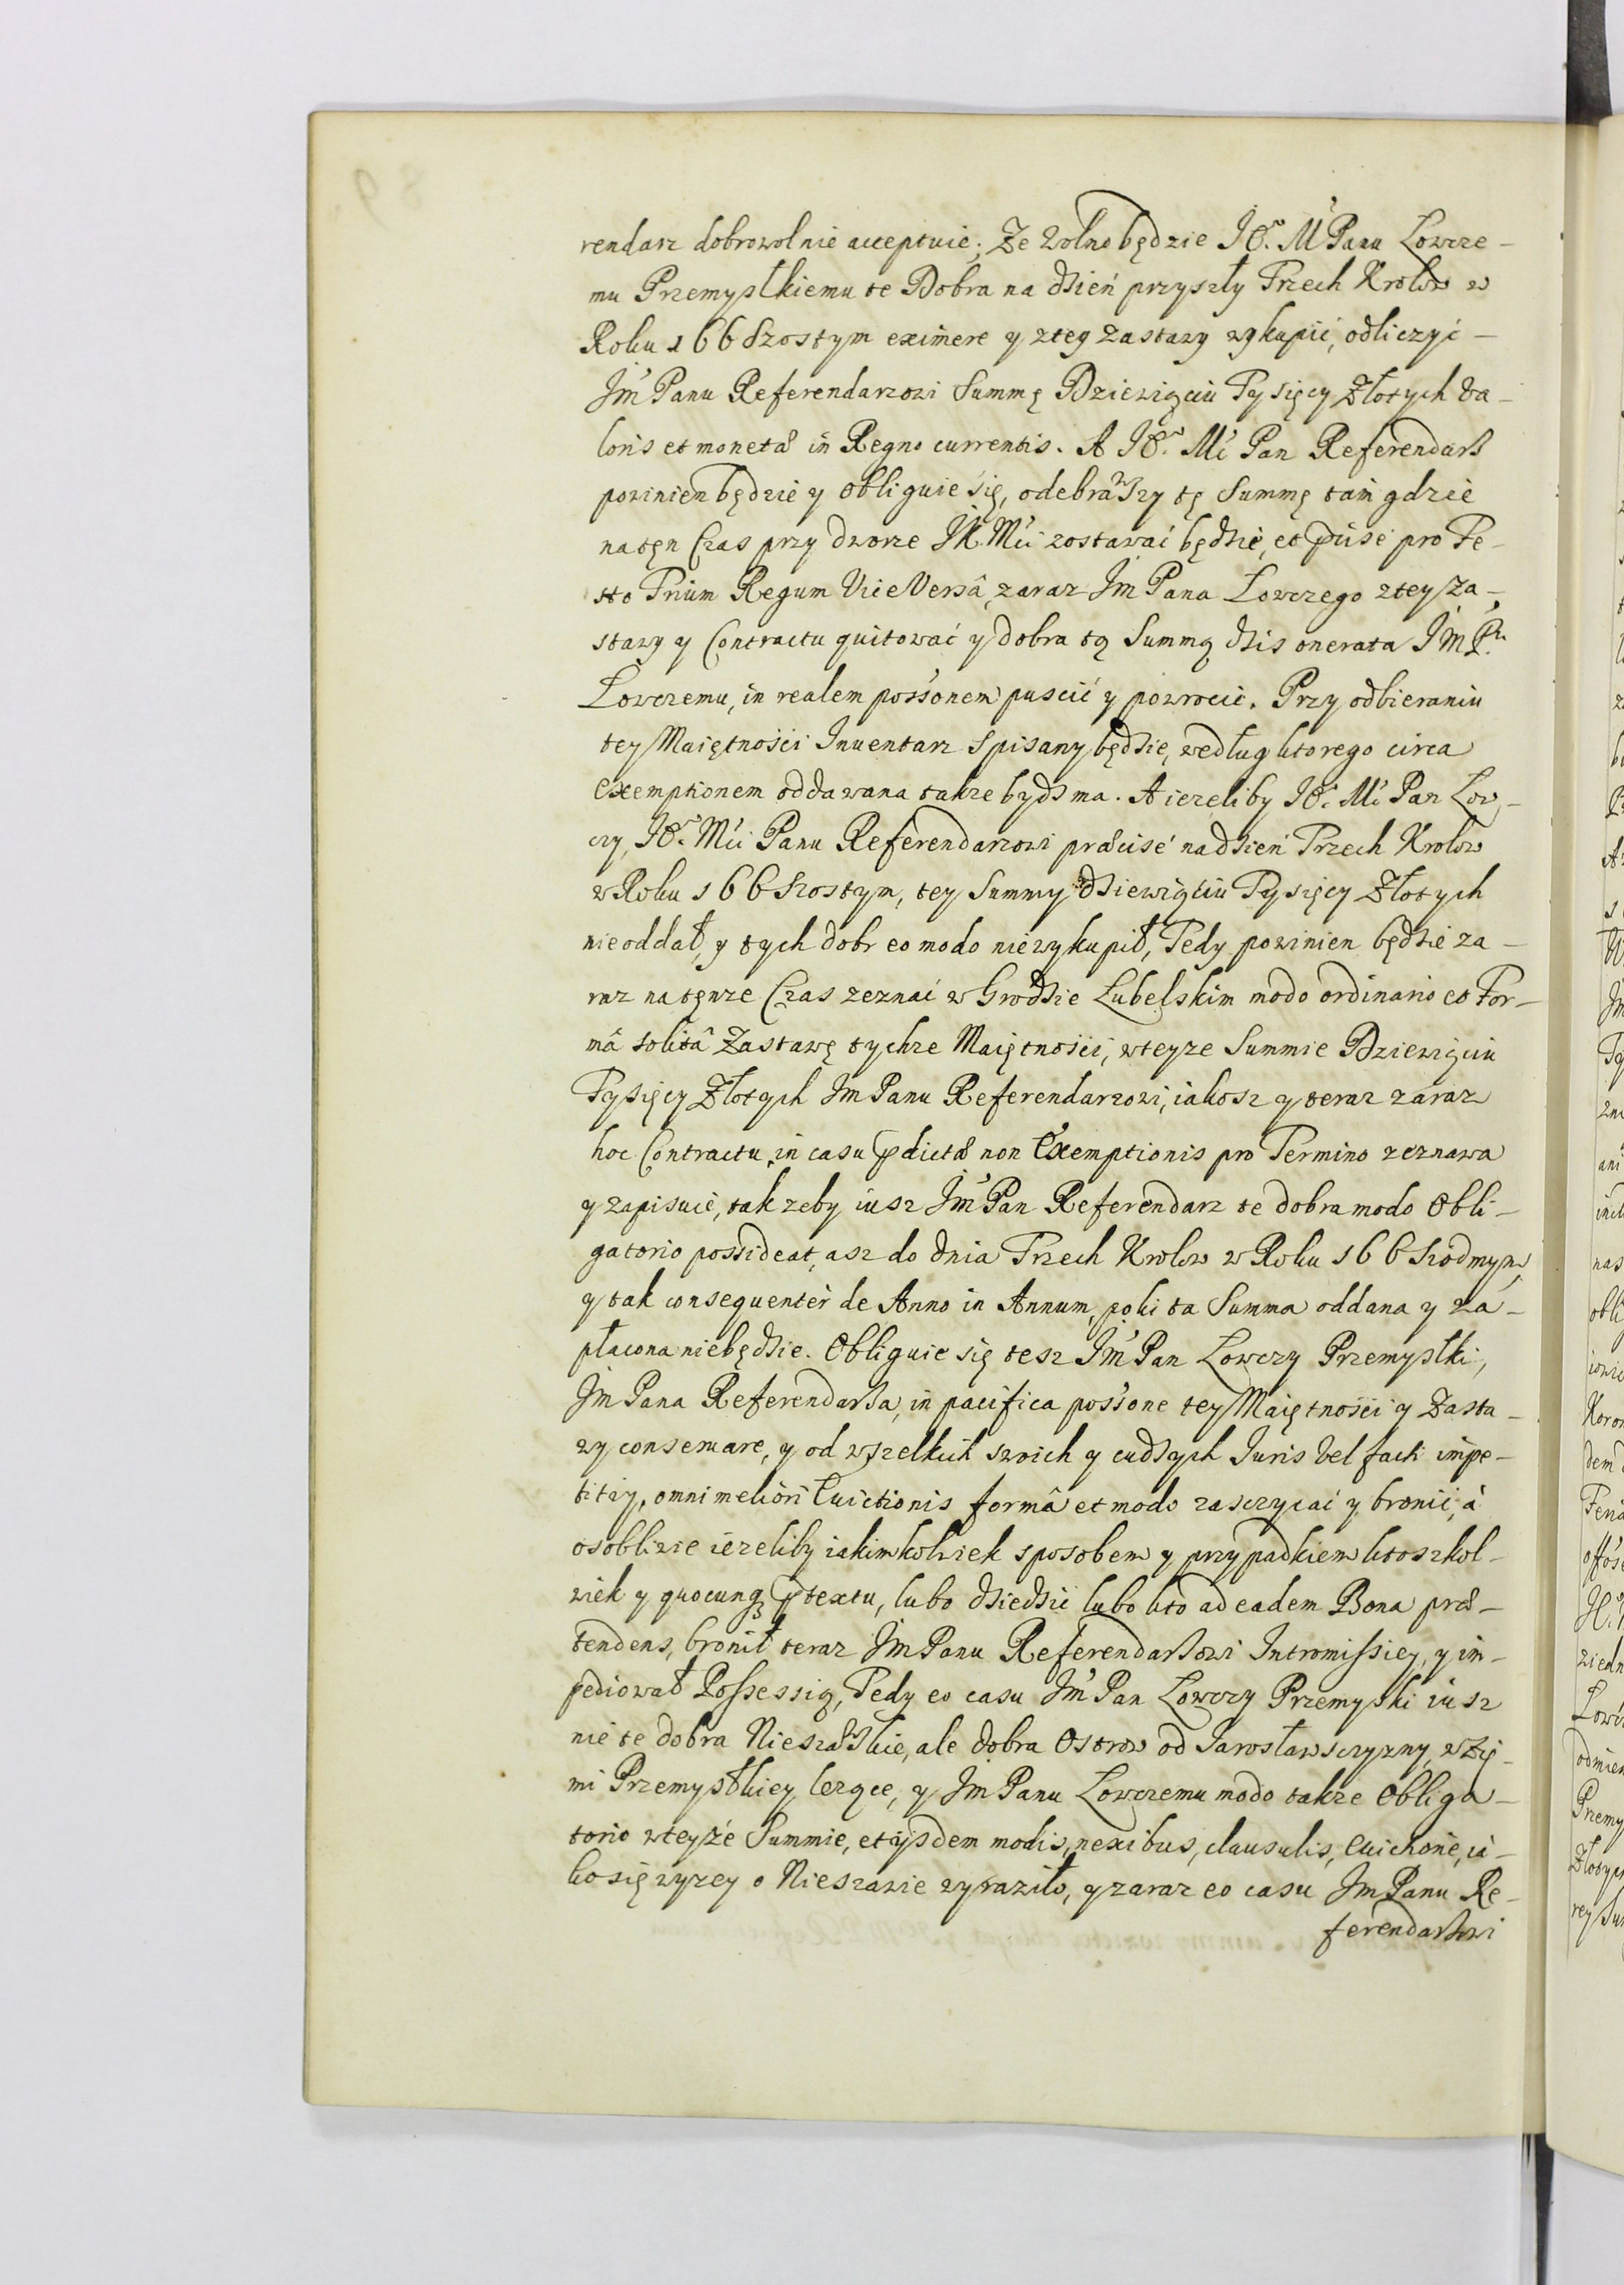 rendarz dobrowolnie acceptuie; Ze Wolno będzie JE.º M Panu Łowcze-
mu Przemyslkiemu te Dobra na dzień przyszły Trzech Krolow w
Roku 166 Szostym eximere y z tey Zastawy wykupić, odliczyć -
Jm Panu Referendarzowi Summę Dziewięciu Tysięcy Złotych Va-
loris et monetæ in Regno currentis. A JE.º Mć Pan Referendarz
powinien będzie y obliguie się, odebrawszy tę Summę tam gdzie
na tęn Czas przy dworze JK Mći zostawać będzie, et præcise pro Fe-
sto Trium Regum Vice Versâ, zaraz Jm Pana Łowczego z tey Za-
stawy y Contractu quitować y dobra tą Summą dzis onerata J M P.
Łowczemu, in realem poss'onem puscić y powrocić. Przy odbieraniu
tey Maiętności Inuentarz Spisany będzie, według ktorego circa
exemptionem oddawana takze bydz ma. A iezeliby JE.º Mć Pan Low-
czy, JE.º Mći Panu Referendarzowi præcisé na dzień Trzech Krolow
w Roku 166 Szostym, tey Summy dziewięciu Tysięcy Złotych
nie oddał, y tych dobr eo modo nie wykupił, Tedy powinien będzie za-
raz na tęnze Czas zeznać w Grodzie Lubelskim modo ordinario et For-
mâ solitâ Zastawę tychze Maiętności, w teyze Summie Dziewięciu
Tysięcy Złotych Jm Panu Referendarzowi, iakosz y teraz zaraz
hoc Contractu in casu pdictæ non Exemptionis pro Termino zeznawa
y zapisuie, tak zeby iusz Jm Pan Referendarz te dobra modo Obli-
gatorio possideat, asz do dnia Trzech Krolow w Roku 166 Siodmym,
y tak consequentèr de Anno in Annum, poki ta Summa oddana y za-
płacona niebędzie. Obliguie się tesz Jm Pan Łowczy Przemyslki,
Jm Pana Referendarza, in pacifica poss'one tey Maiętności y Zasta-
wy conseruare, y od wszelkich swoich y cudzych Iuris Vel facti impe-
titiy, omni meliori Euictionis formâ et modo zasczycać y bronić, á
osobliwie iezeliby iakimkolwiek sposobem y przypadkiem ktoszkol-
wiek y quocunq ptextu, lubo dziedzic lubo kto ad eadem Bona præ-
tendens, bronił teraz Jm Panu Referendarzowi Intromissiey, y im-
pediował Possessią, Tedy eo casu Jm Pan Łowczy Przemyski iusz
nie te dobra Nieszawskie, ale dobra Ostrow od Iarosławsczyzny, w Zie-
mi Przemyslkiey lezące, y Jm Panu Łowczemu modo takze Obliga-
torio w teyze Summie, et ijsdem modis, nexibus, clausulis, Euictione, ia-
ko się wyzey o Nieszawie wyraziło, y zaraz eo casu Jm Panu Re-
ferendarzowi